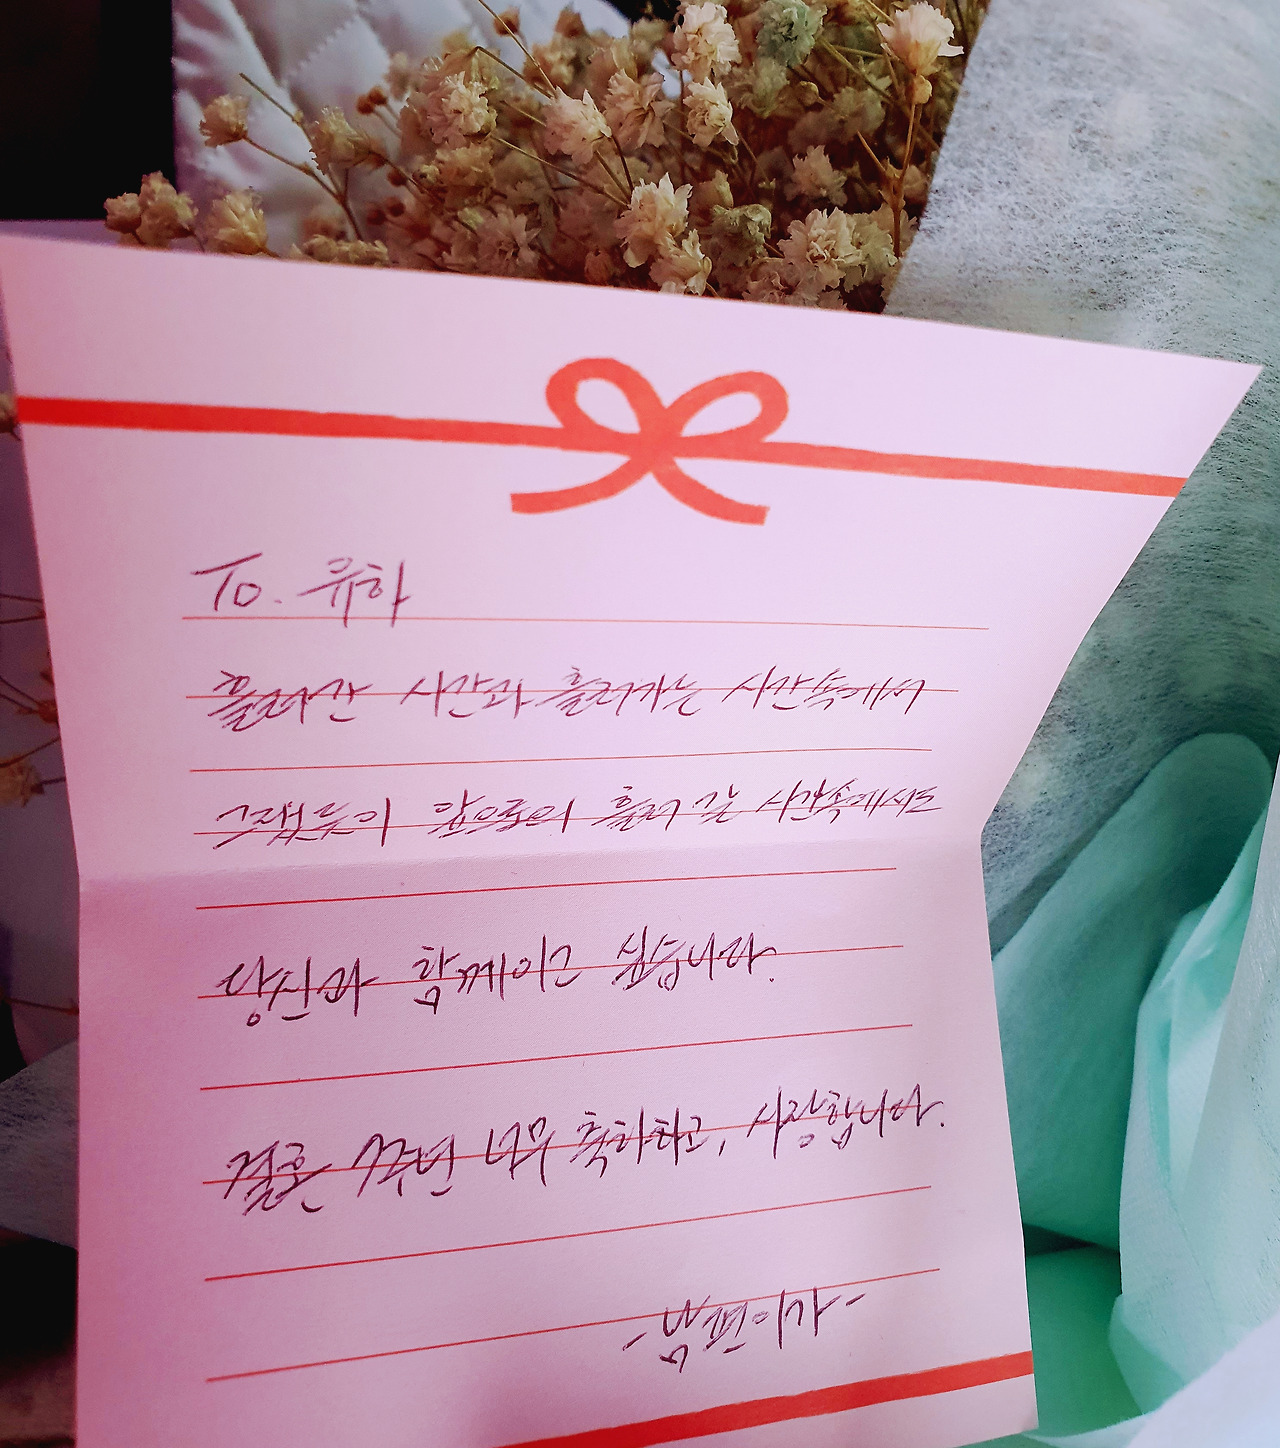 To. 유하
흘러간 시간과 흘러가는 시간속에서
그랬듯이 앞으로의 흘러 갈 시간속에서도
당신과 함께이고 싶습니다.
결혼 7주년 너무 축하하고, 사랑합니다.
-남편이가-